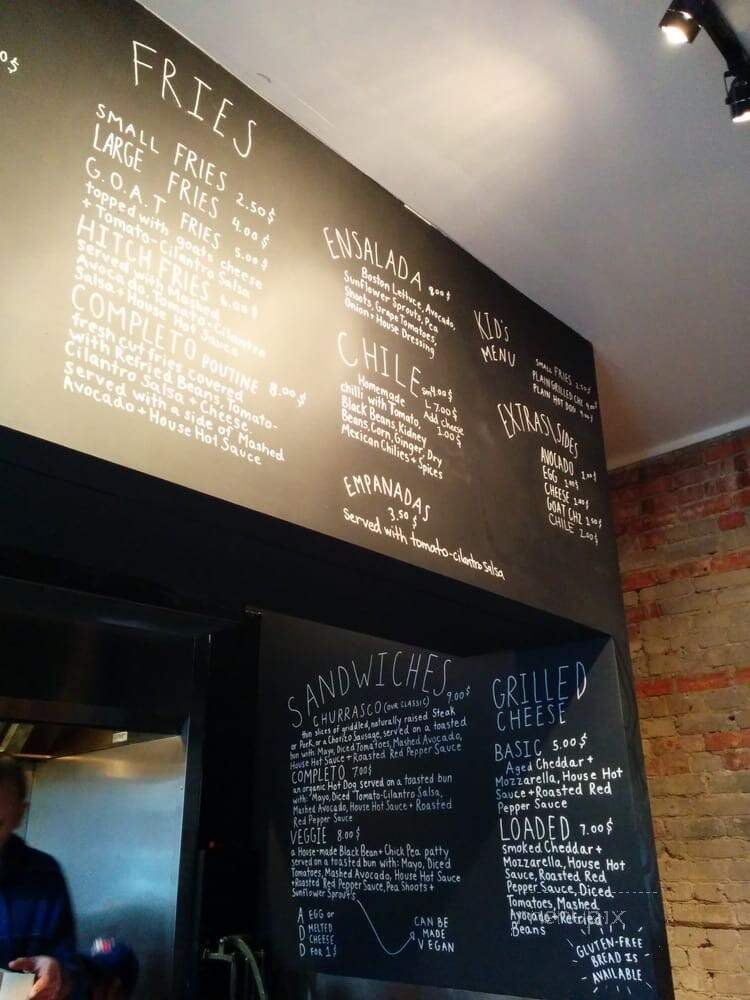 FRIES
SMALL FRIES 2.50$
LARGE FRIES 4.00$
G.O.A.T FRIES 5.00$
topped with goats cheese
+ Tomato-Cilantro Salsa
HITCH FRIES 6.00$
served with Mashed
Avocado, Tomato-Cilantro
Salsa + House Hot Sauce
COMPLETO POUTINE 8.00$
fresh cut fries covered
with Refried Beans, Tomato-
Cilantro Salsa + Cheese,
served with a side of Mashed
Avocado + House Hot Sauce
ENSALADA 8.00$
Boston Lettuce, Avocado,
Sunflower Sprouts, Pea
Shoots, Grape Tomatoes,
Onion + House Dressing
CHILE sm4.00$
L7.00$
Add cheese
1.00$
Homemade
chilli with Tomato,
Black Beans, Kidney
Beans, Corn, Ginger, Dry
Mexican Chilies + Spices
EMPANADAS
3.50$
Served with tomato-cilantro salsa
KID'S
MENU
SMALL FRIES 2.50$
PLAIN GRILLED CHZ 4.00$
PLAIN HOT DOG 4.00$
EXTRAS\SIDES
AVOCADO 1.00$
EGG 1.00$
CHEESE 1.00$
GOAT CHZ 1.50$
CHILE 2.00$
SANDWICHES
CHURRASCO (OUR CLASSIC) 9.00$
thin slices of griddled, naturally raised Steak
or Pork, or a Chorizo Sausage, served on a toasted
bun with: Mayo, Diced Tomatoes, Mashed Avocado,
House Hot Sauce + Roasted Red Pepper Sauce
COMPLETO 7.00$
an organic Hot Dog served on a toasted bun
with: Mayo, Diced Tomato-Cilantro Salsa,
Mashed Avocado, House Hot Sauce + Roasted
Red Pepper Sauce
VEGGIE 8.00$
a House-made Black Bean + Chick Pea patty
served on a toasted bun with: Mayo, Diced
Tomatoes, Mashed Avocado, House Hot Sauce
+ Roasted Red Pepper Sauce, Pea Shoots +
Sunflower Sprouts
ADD
EGG or
MELTED
CHEESE
FOR 1$
CAN BE
MADE
VEGAN
GRILLED
CHEESE
BASIC 5.00$
Aged Cheddar +
Mozzarella, House Hot
Sauce + Roasted Red
Pepper Sauce
LOADED 7.00$
smoked Cheddar +
Mozzarella, House Hot
Sauce, Roasted Red
Pepper Sauce, Diced
Tomatoes, Mashed
Avocado + Refried
Beans
GLUTEN-FREE
BREAD IS
AVAILABLE